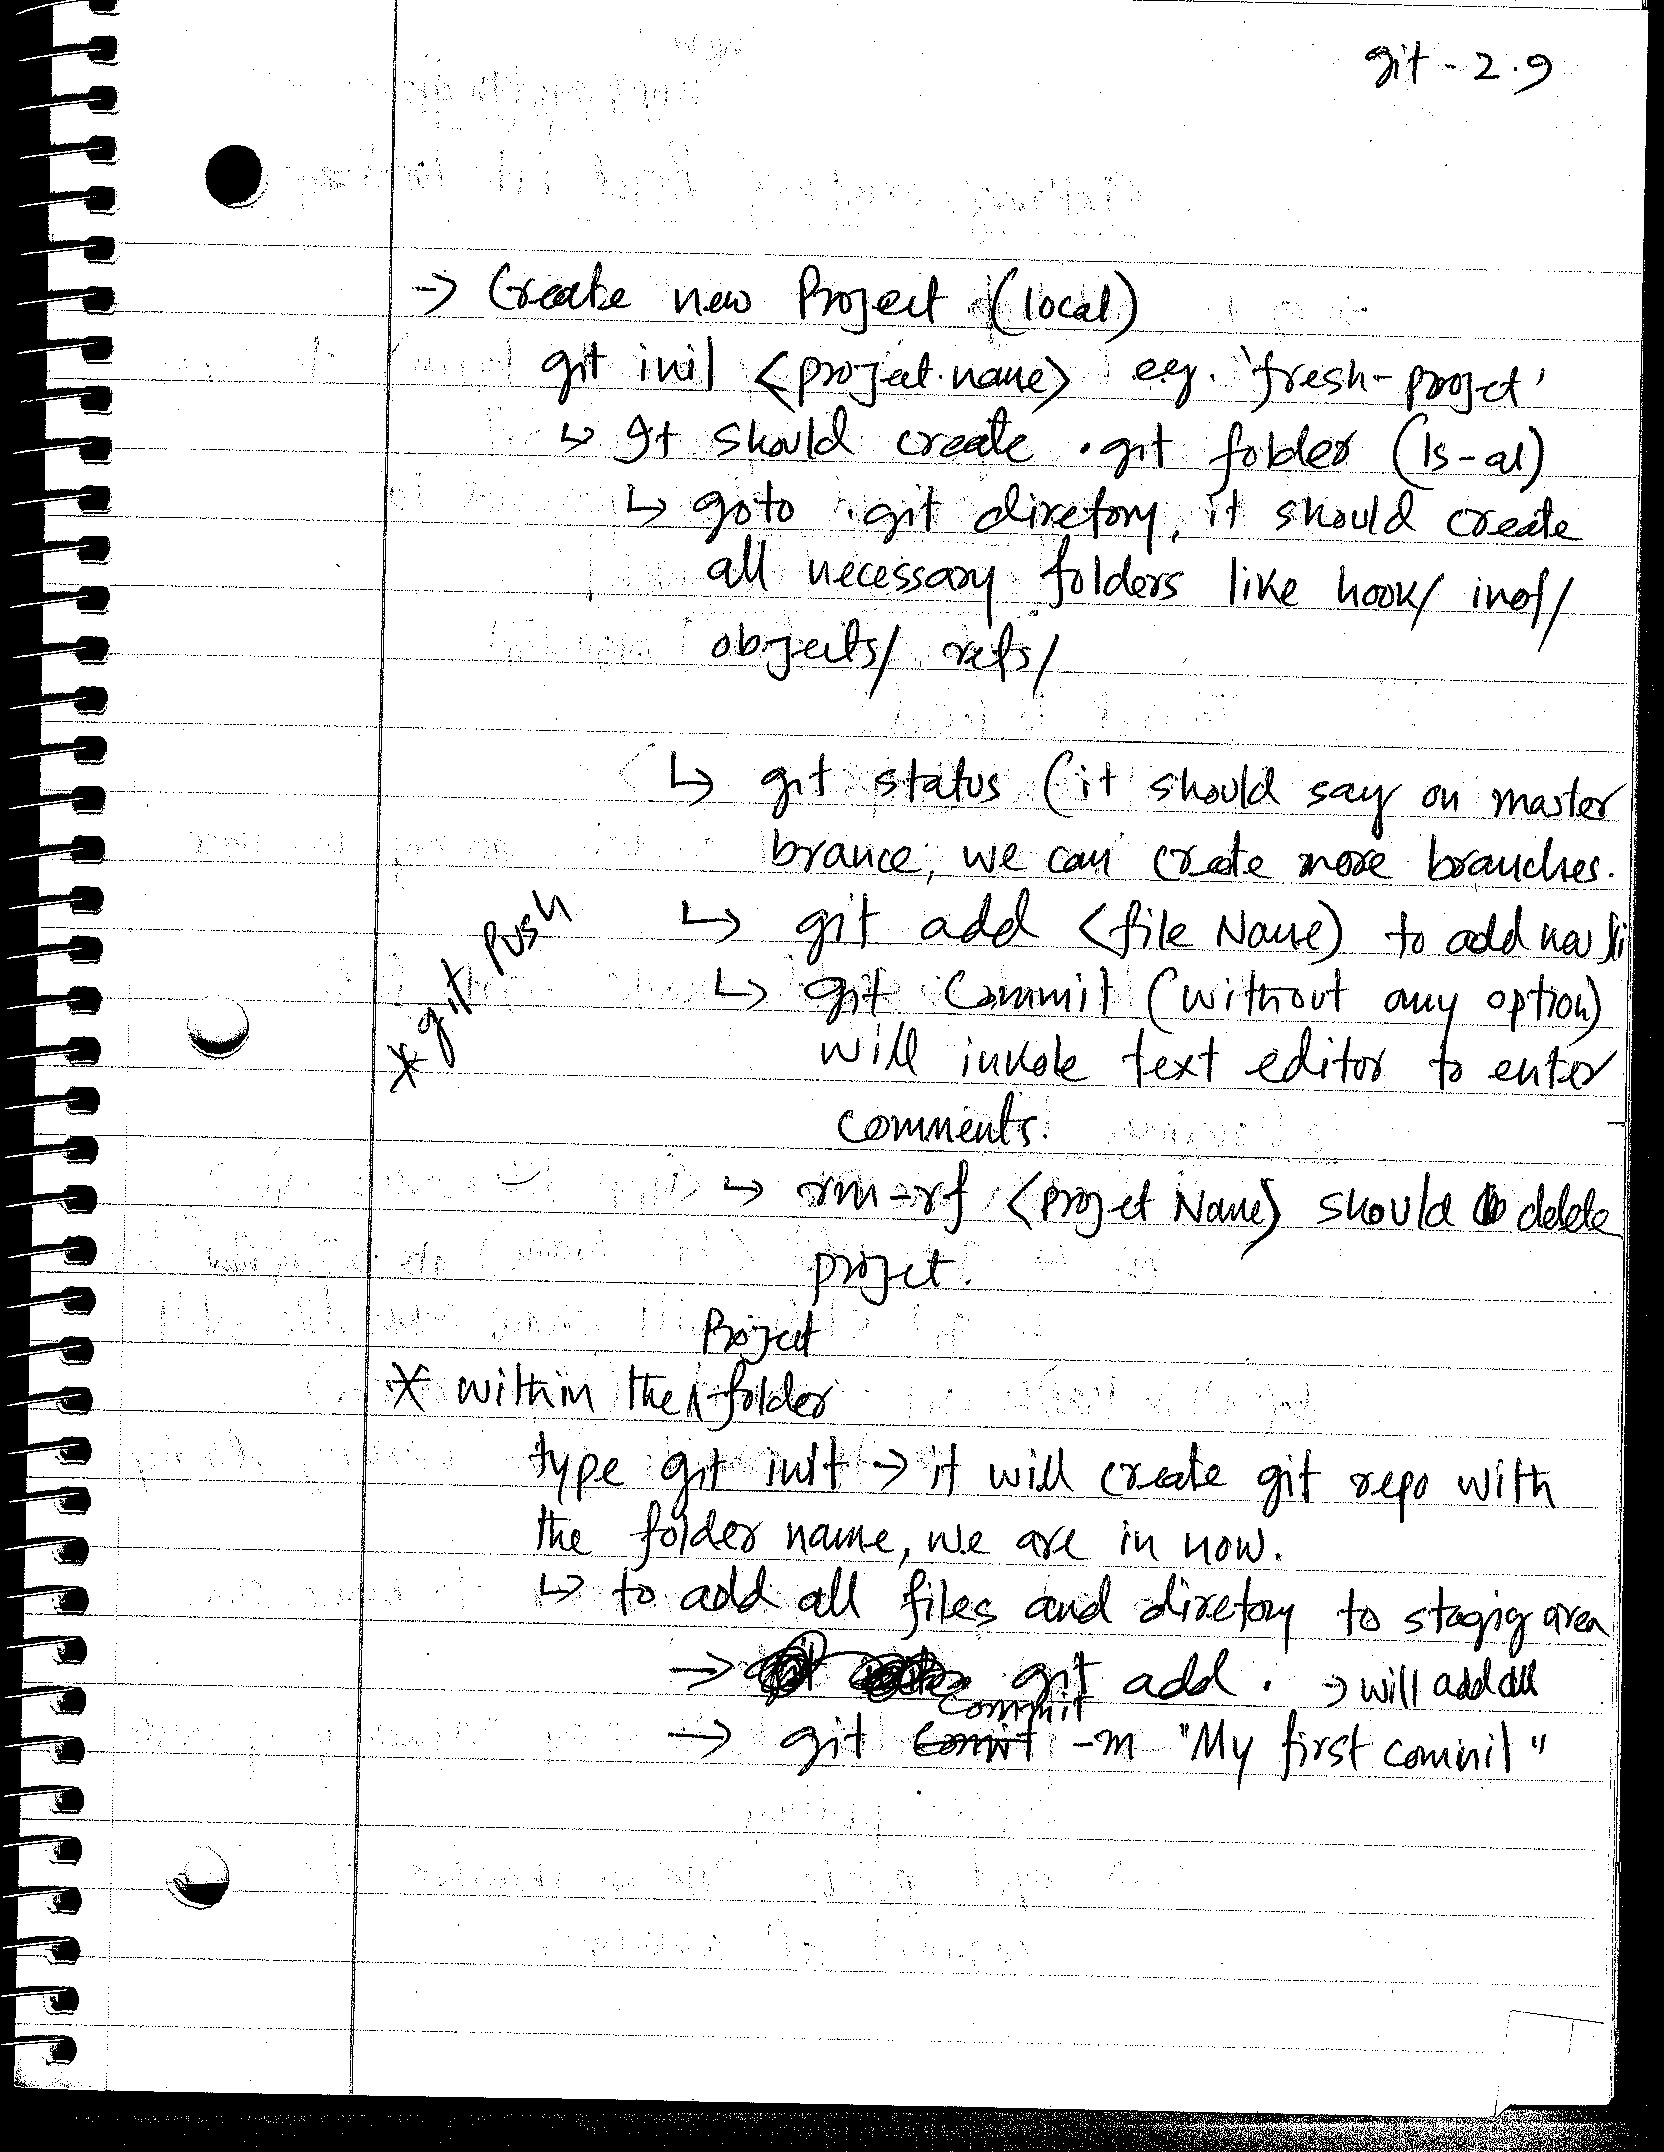 git - 2.9
-> Create new Project (local)
git init <project.name> eg. 'fresh-projct'
↳ It should create .git folder (ls-al)
↳ goto .git diretory, it should create
all necessary folders like hook/ inof/
objects/ refs/
↳ git status (it should say on master
brance, we can create more branches.
↳ git add <file Name) to add new fi
* git push
↳ git Commit (without any option)
will invoke text editor to enter
comments.
↳ rm -rf <projet Name) should delete
projet.
Project
* within the ^ folder
type git init -> it will create git repo with
the folder name, we are in now.
↳ to add all files and diretory to stagig area
-> git add . -> will add all
Commit
-> git Comit -m "My first commit"